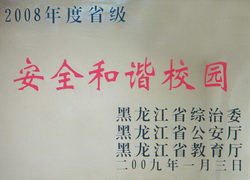 2008年度省级
安全和谐校园
黑龙江省综治委
黑龙江省公安厅
黑龙江省教育厅
二00九年一月三日